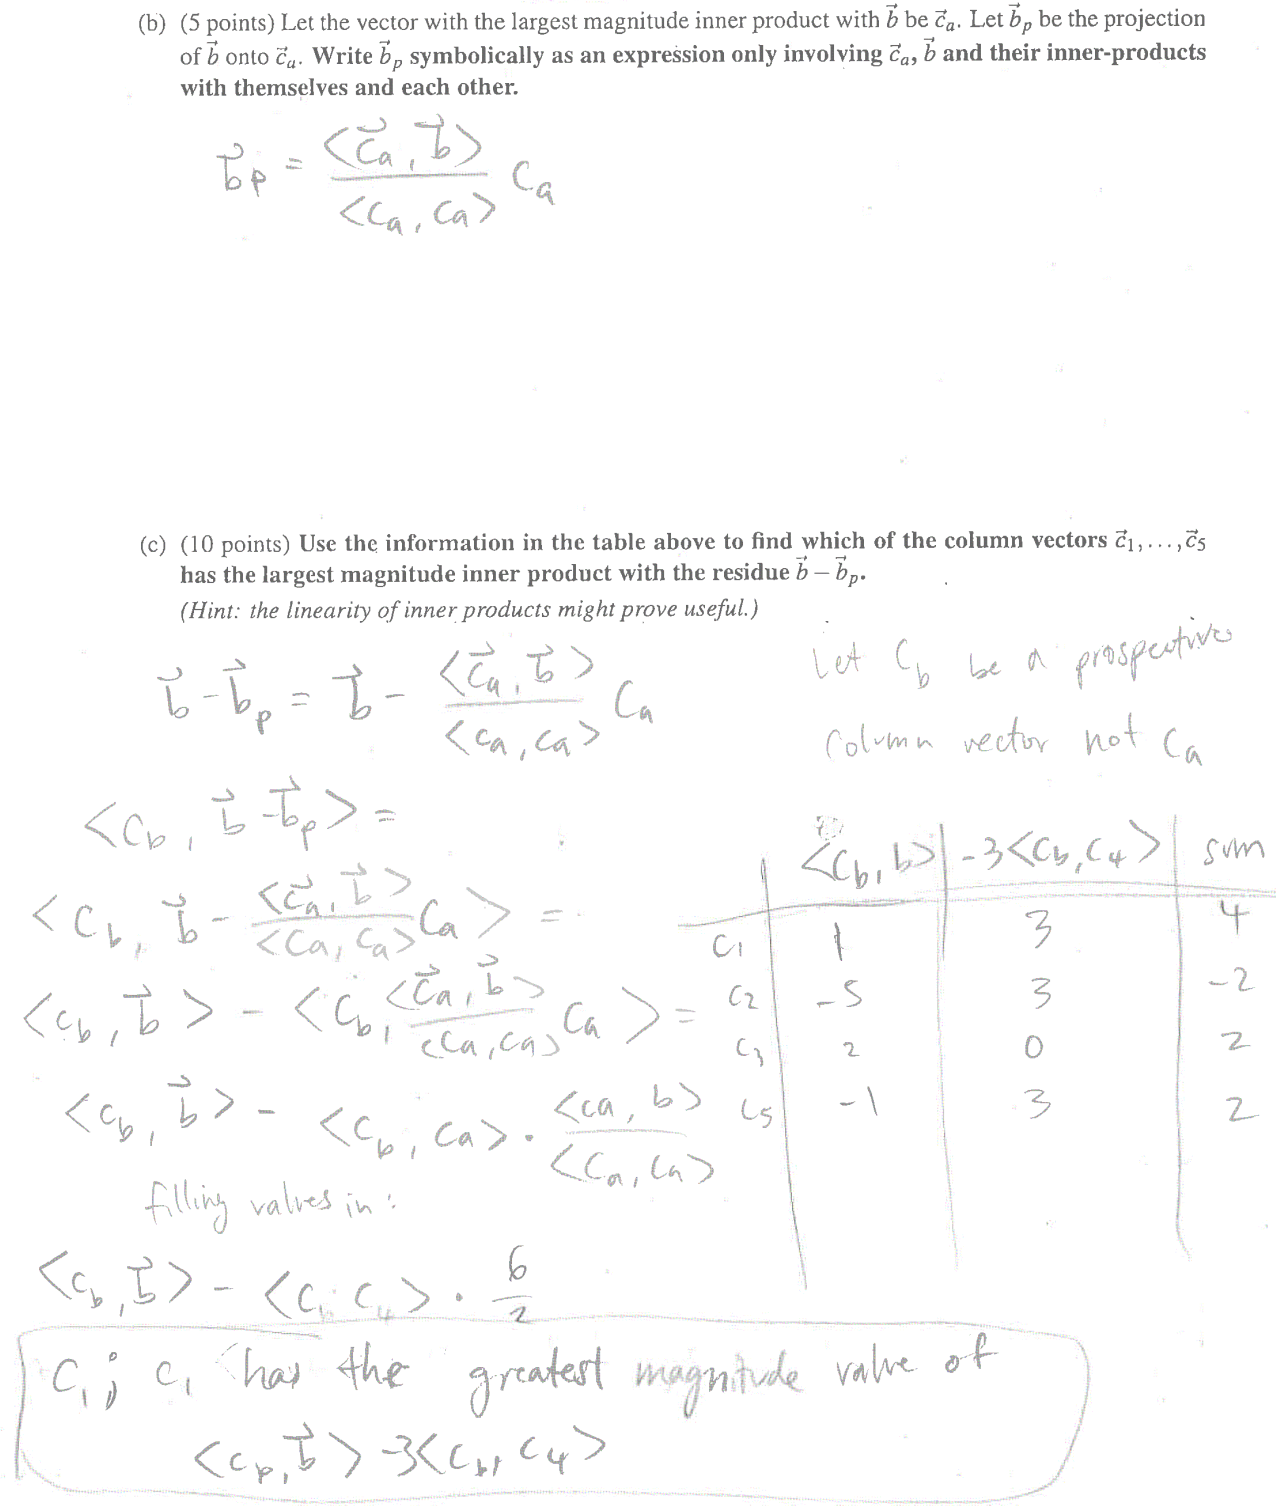 (b) (5 points) Let the vector with the largest magnitude inner product with b⃗ be c⃗ₐ. Let b⃗ₚ be the projection
of b⃗ onto c⃗ₐ. Write b⃗ₚ symbolically as an expression only involving c⃗ₐ, b⃗ and their inner-products
with themselves and each other.
b⃗ₚ = <c⃗ₐ, b⃗> / <cₐ, cₐ> cₐ
(c) (10 points) Use the information in the table above to find which of the column vectors c⃗₁,...,c⃗₅
has the largest magnitude inner product with the residue b⃗ – b⃗ₚ.
(Hint: the linearity of inner products might prove useful.)
b⃗ - b⃗ₚ = b⃗ - <c⃗ₐ, b⃗> / <cₐ, cₐ> cₐ
<c_b, b⃗ - b⃗ₚ> =
<c_b, b⃗ - <c⃗ₐ, b⃗> / <cₐ, cₐ> cₐ> =
<c_b, b⃗> - <c_b, <c⃗ₐ, b⃗> / <cₐ, cₐ> cₐ> =
<c_b, b⃗> - <c_b, cₐ> · <cₐ, b> / <cₐ, cₐ>
filling values in:
<c_b, b⃗> - <c_b, c₄> · 6/2
Let c_b be a prospective
column vector not cₐ
<c_b, b> | -3<c_b, c₄> | sum
c₁ | 1 | 3 | 4
c₂ | -5 | 3 | -2
c₃ | 2 | 0 | 2
c₅ | -1 | 3 | 2
c₁; c₁ has the greatest magnitude value of
<c_b, b⃗> -3<c_b, c₄>